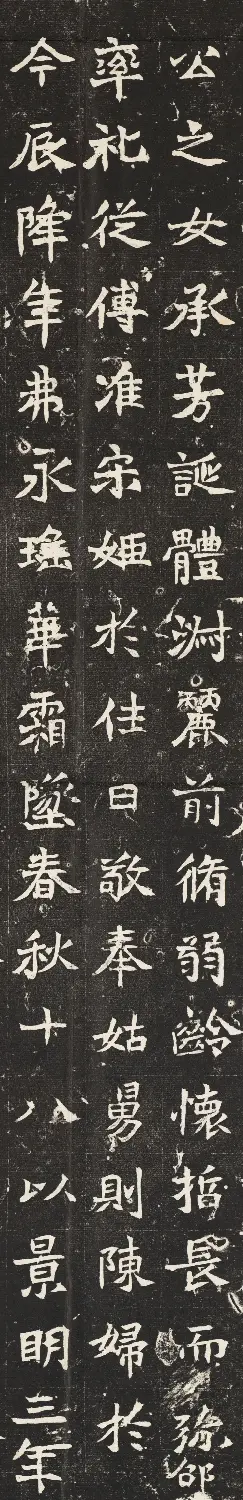 公之女承芳誕體淑麗前脩弱齡懷哲長而
率礼從傅准宋姬於往日敬奉姑舅則陳婦於
今辰降年弗永瑤華霜墜春秋十八以景明三年